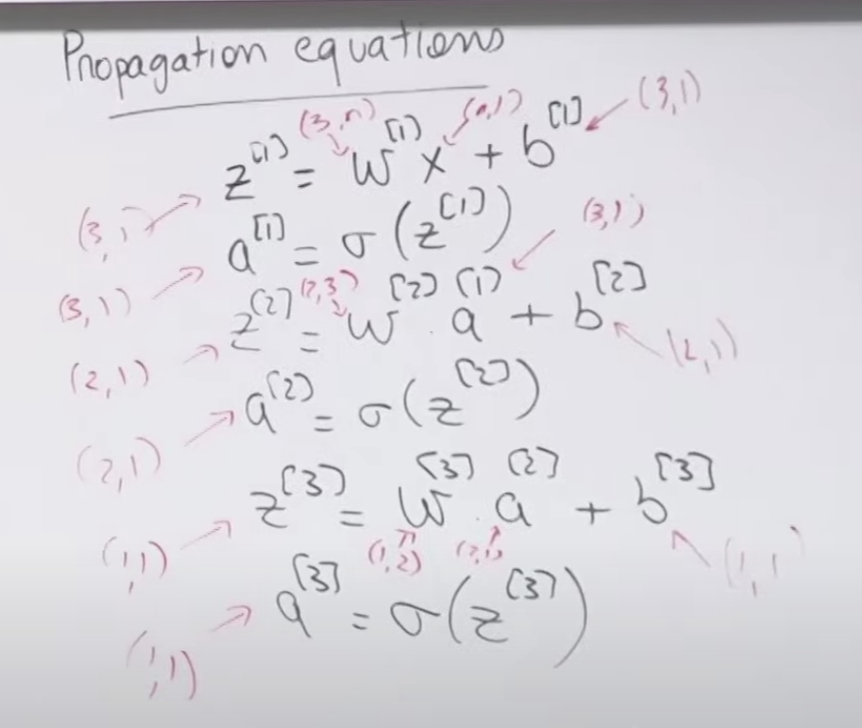 Propagation equations
(3,n) (n,1) (3,1)
z^[1] = w^[1] x + b^[1]
(3,1)
a^[1] = σ(z^[1])
(3,1) (3,1)
(2,3)
z^[2] = w^[2] . a^[1] + b^[2]
(2,1) (2,1)
a^[2] = σ(z^[2])
(2,1)
z^[3] = w^[3] . a^[2] + b^[3]
(1,1) (1,2) (2,1) (1,1)
a^[3] = σ(z^[3])
(1,1)